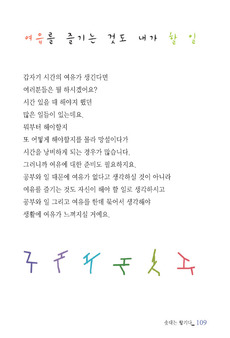 여유를 즐기는 것도 내가 할 일
갑자기 시간의 여유가 생긴다면
여러분들은 뭘 하시겠어요?
시간 있을 때 해야지 했던
많은 일들이 있는데요.
뭐부터 해야할지
또 어떻게 해야할지를 몰라 망설이다가
시간을 낭비하게 되는 경우가 많습니다.
그러니까 여유에 대한 준비도 필요하지요.
공부와 일 때문에 여유가 없다고 생각하실 것이 아니라
여유를 즐기는 것도 자신이 해야 할 일로 생각하시고
공부와 일 그리고 여유를 한데 묶어서 생각해야
생활에 여유가 느껴지실 거예요.
109